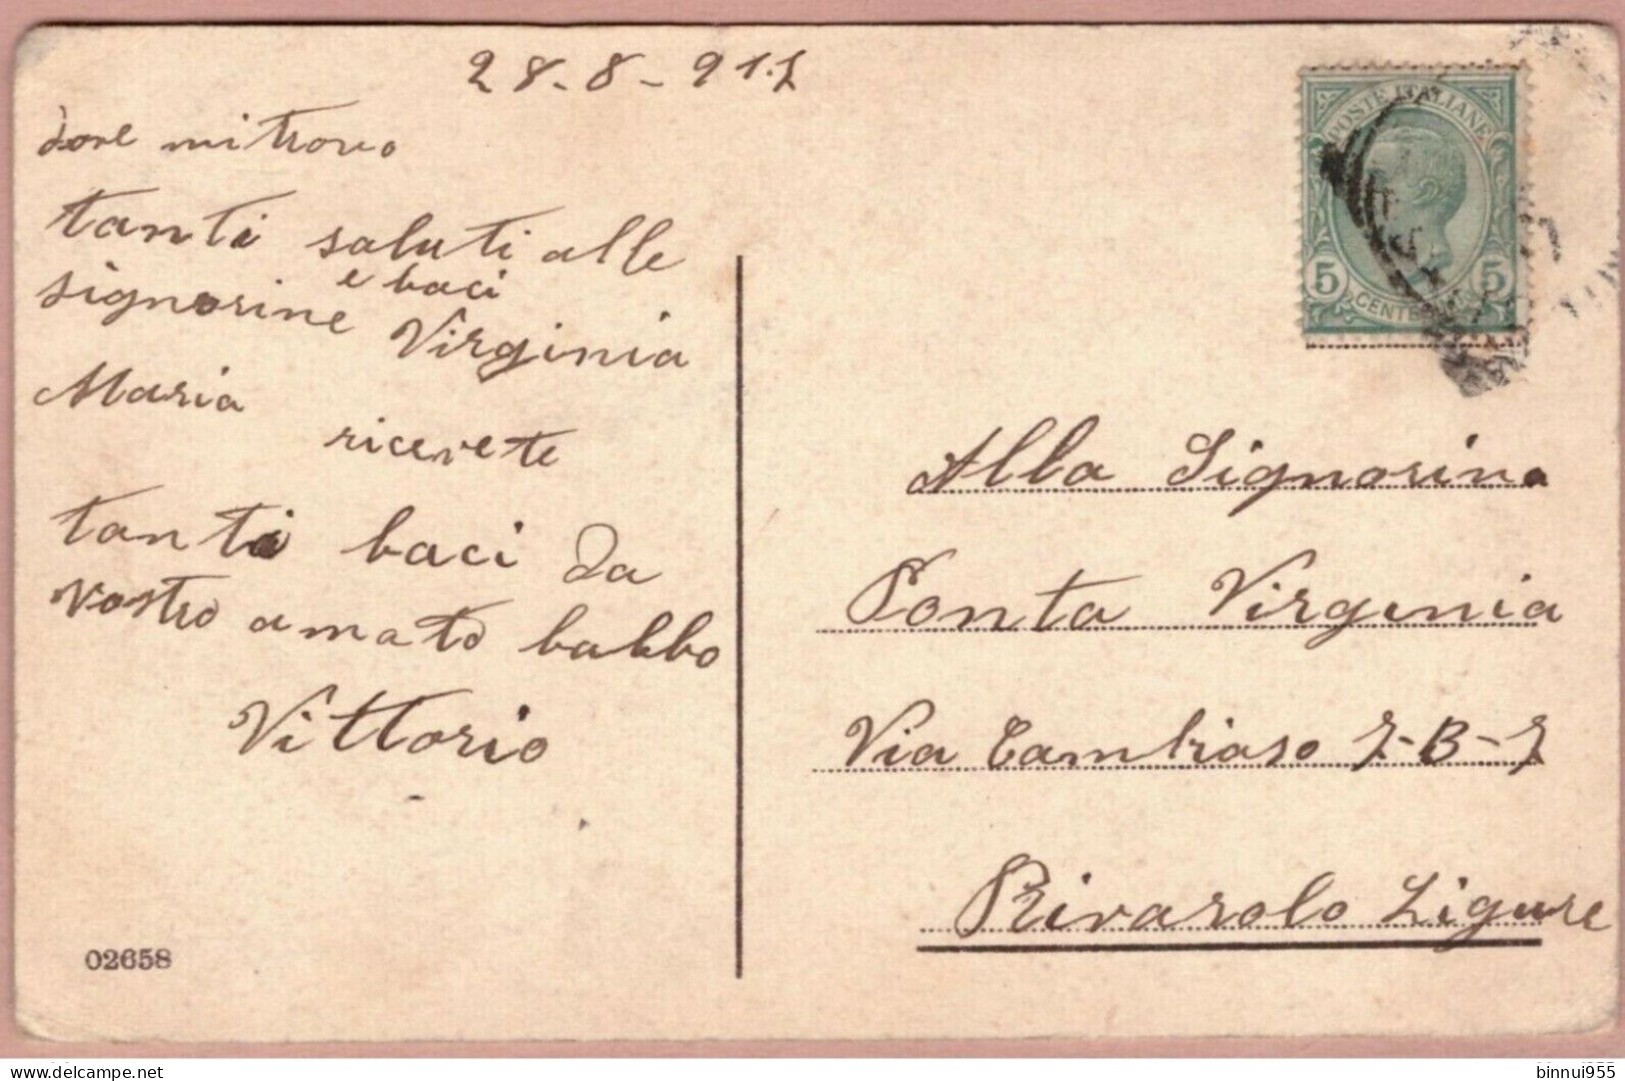 28-8-911
dove mi trovo
tanti saluti alle
e baci
signorine Virginia
Maria ricevete
tanti baci da
vostro amato babbo
Vittorio
02658
POSTE ITALIANE
5 CENTE 5
Alla Signorina
Ponta Virginia
Via Cambiaso 7-B-7
Rivarolo Ligure
www.delcampe.net
binnui955